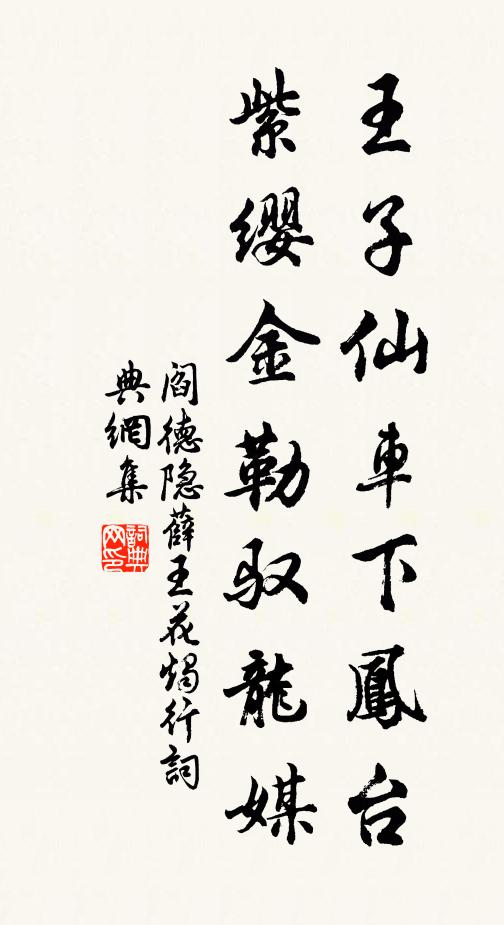 王子仙車下鳳台
紫缨金勒驭龍媒
阎德隐薛王花燭行詞
典網集
詞典网印